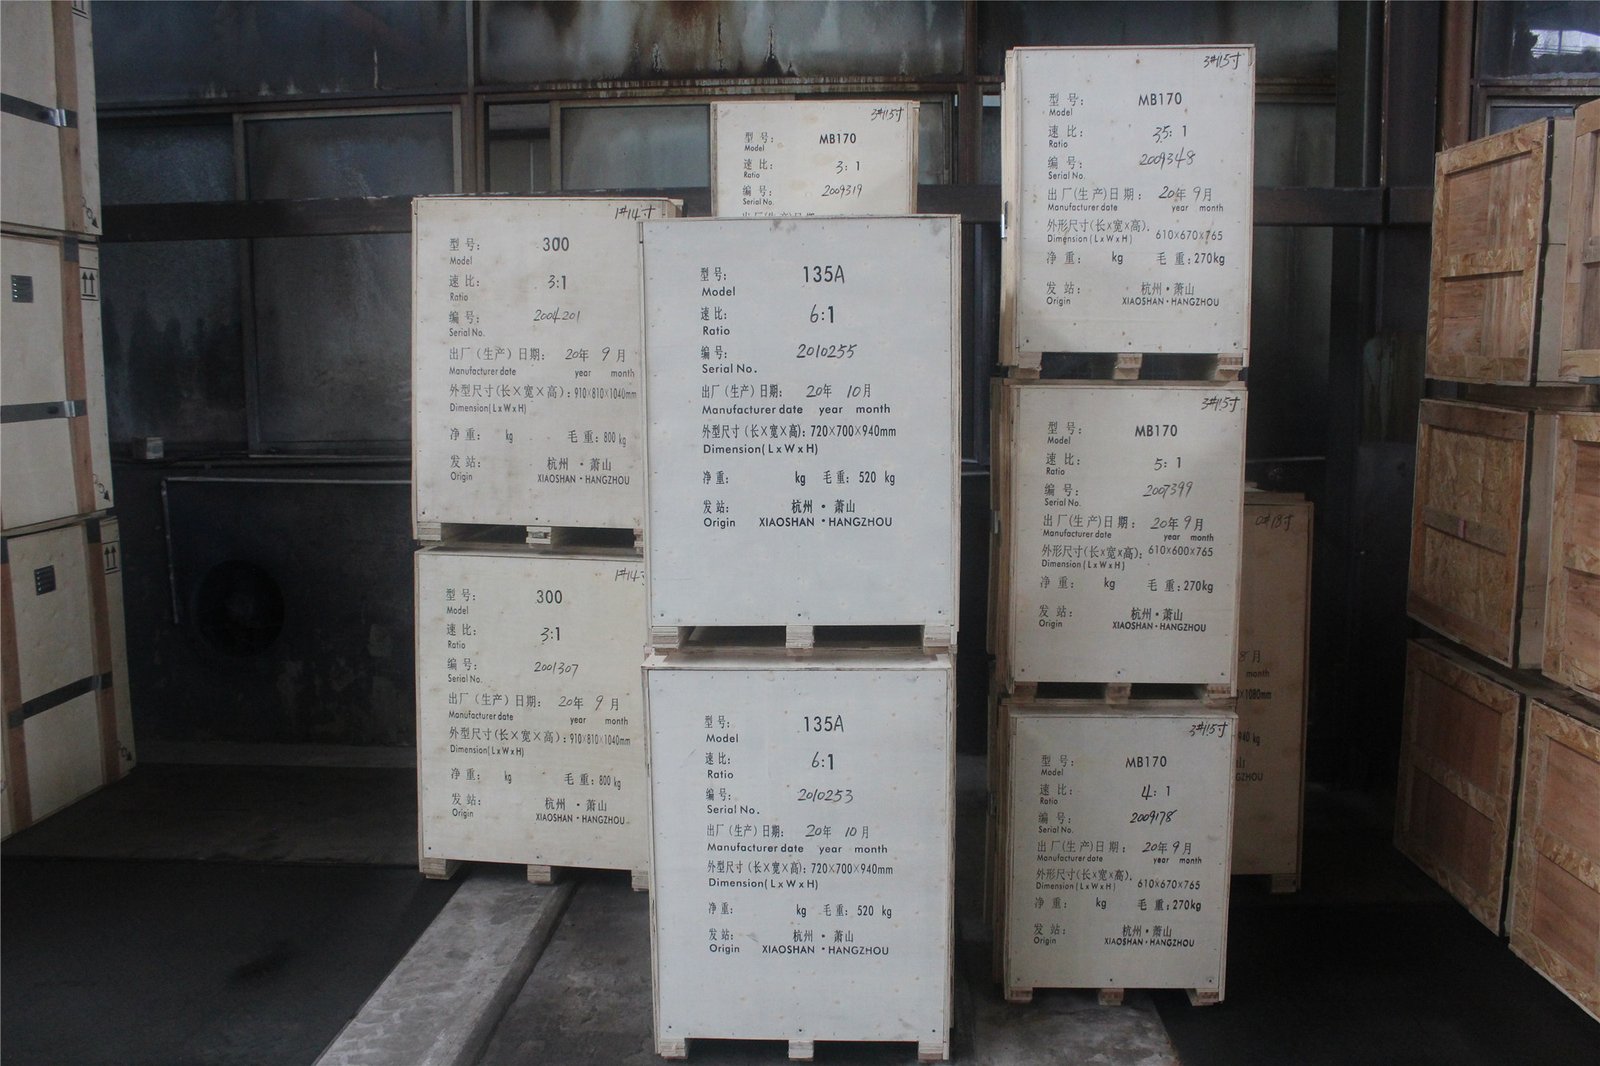 1#14寸
型号: 300
Model
速比: 3:1
Ratio
编号: 2004201
Serial No.
出厂（生产）日期: 20年 9月
Manufacturer date year month
外型尺寸(长×宽×高): 910×810×1040mm
Dimension(LxWxH)
净重: kg 毛重: 800 kg
发站: 杭州·萧山
Origin XIAOSHAN·HANGZHOU
1#14寸
型号: 300
Model
速比: 3:1
Ratio
编号: 2001307
Serial No.
出厂（生产）日期: 20年 9月
Manufacturer date year month
外型尺寸(长×宽×高): 910×810×1040mm
Dimension(LxWxH)
净重: kg 毛重: 800 kg
发站: 杭州·萧山
Origin XIAOSHAN·HANGZHOU
3#11.5寸
型号: MB170
Model
速比: 3:1
Ratio
编号: 2009319
Serial No.
型号: 135A
Model
速比: 6:1
Ratio
编号: 2010255
Serial No.
出厂（生产）日期: 20年 10月
Manufacturer date year month
外型尺寸(长×宽×高): 720×700×940mm
Dimension(LxWxH)
净重: kg 毛重: 520 kg
发站: 杭州·萧山
Origin XIAOSHAN·HANGZHOU
型号: 135A
Model
速比: 6:1
Ratio
编号: 2010253
Serial No.
出厂（生产）日期: 20年 10月
Manufacturer date year month
外型尺寸(长×宽×高): 720×700×940mm
Dimension(LxWxH)
净重: kg 毛重: 520 kg
发站: 杭州·萧山
Origin XIAOSHAN·HANGZHOU
3#11.5寸
型号: MB170
Model
速比: 3.5:1
Ratio
编号: 2009348
Serial No.
出厂(生产)日期: 20年 9月
Manufacturer date year month
外形尺寸(长×宽×高). 610×670×765
Dimension(LxWxH)
净重: kg 毛重:270kg
发站: 杭州·萧山
Origin XIAOSHAN·HANGZHOU
3#11.5寸
型号: MB170
Model
速比: 5:1
Ratio
编号: 2007399
Serial No.
出厂(生产)日期: 20年 9月
Manufacturer date year month
外形尺寸(长×宽×高): 610×600×765
Dimension(LxWxH)
净重: kg 毛重:270kg
发站: 杭州·萧山
Origin XIAOSHAN·HANGZHOU
3#11.5寸
型号: MB170
Model
速比: 4:1
Ratio
编号: 2009178
Serial No.
出厂(生产)日期: 20年 9月
Manufacturer date year month
外形尺寸(长×宽×高). 610×670×765
Dimension(LxWxH)
净重: kg 毛重:270kg
发站: 杭州·萧山
Origin XIAOSHAN·HANGZHOU
8月
month
×1080mm
940 kg